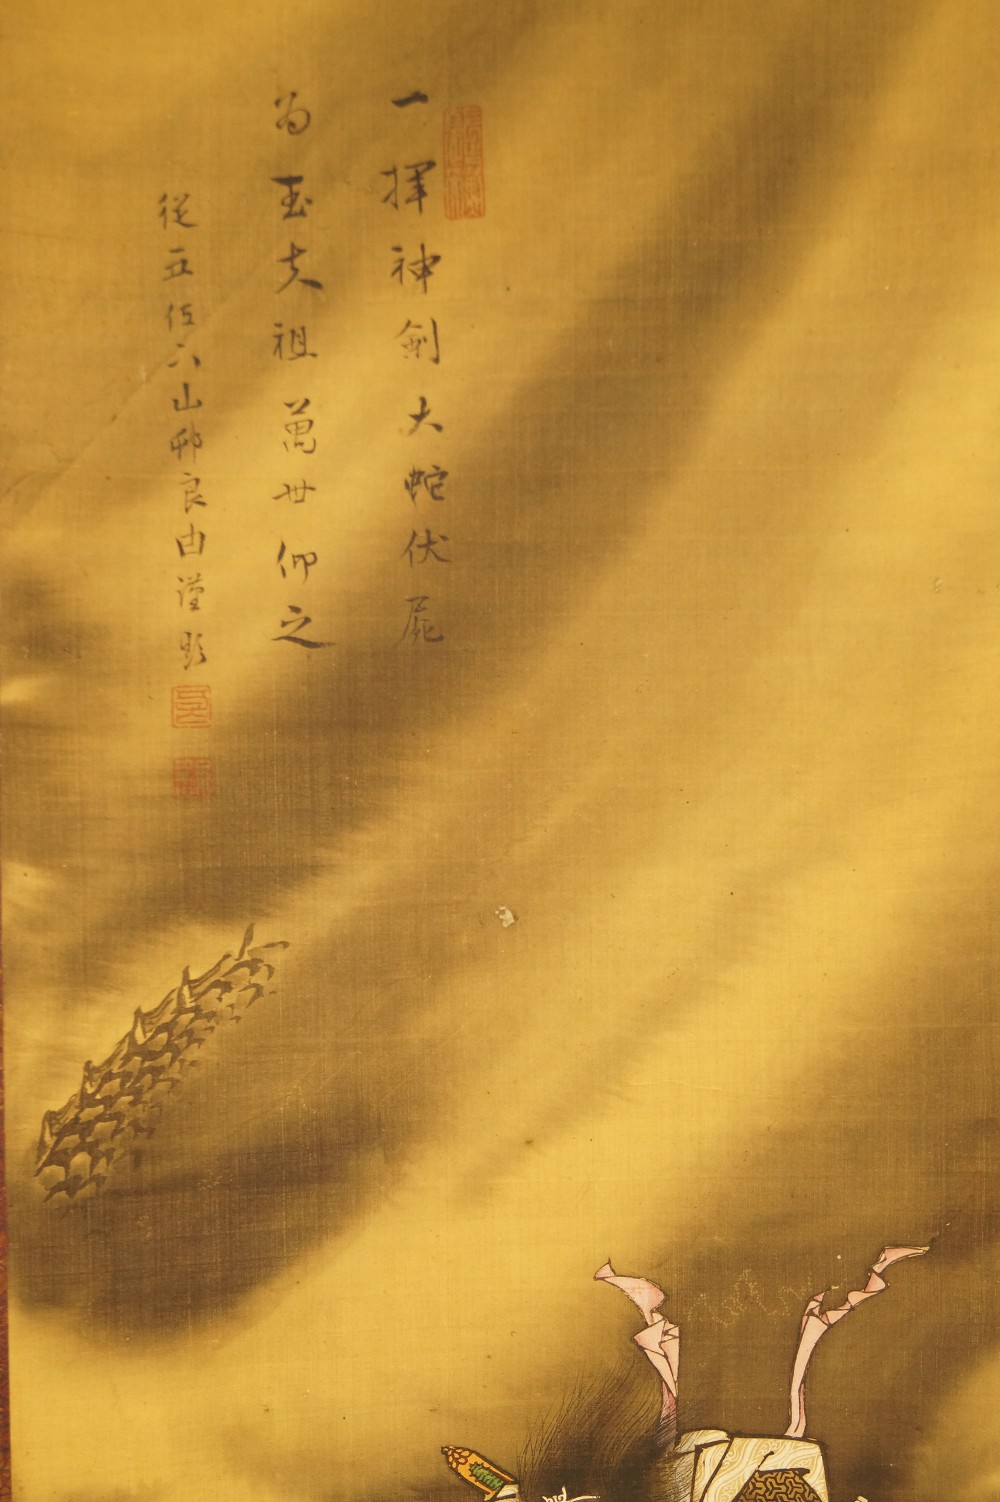 一揮神劍大蛇伏屍
為玉夫祖萬世仰之
從五位下山邨良由謹題